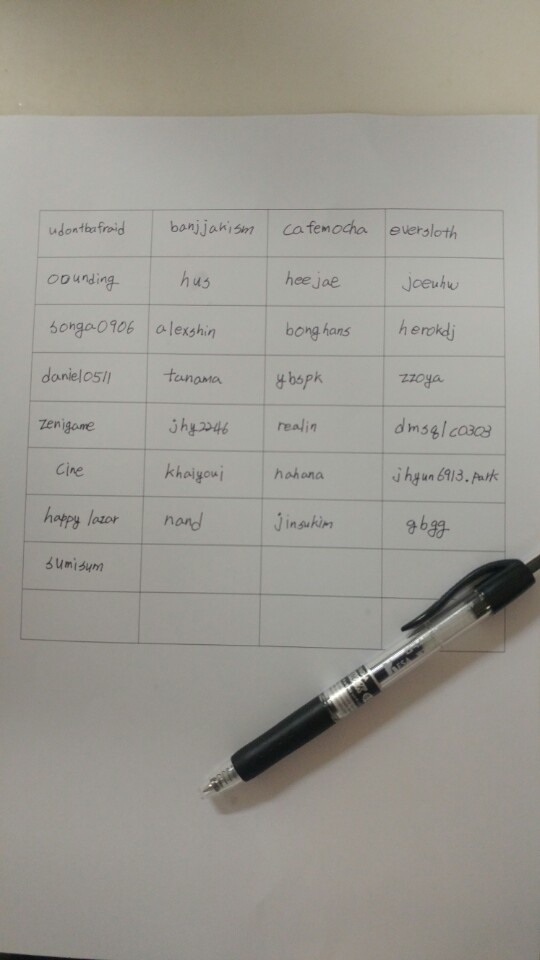 udontbafraid banjjakism cafemocha eversloth
oounding hus heejae joeuhw
songa0906 alexshin bonghans herokdj
daniel0511 tanama ybspk zzoya
zenigame jhy2246 realin
cine khaiyoui hahana jhyun6913.park
happy lazar nand jinsukim gbgg
sumisum